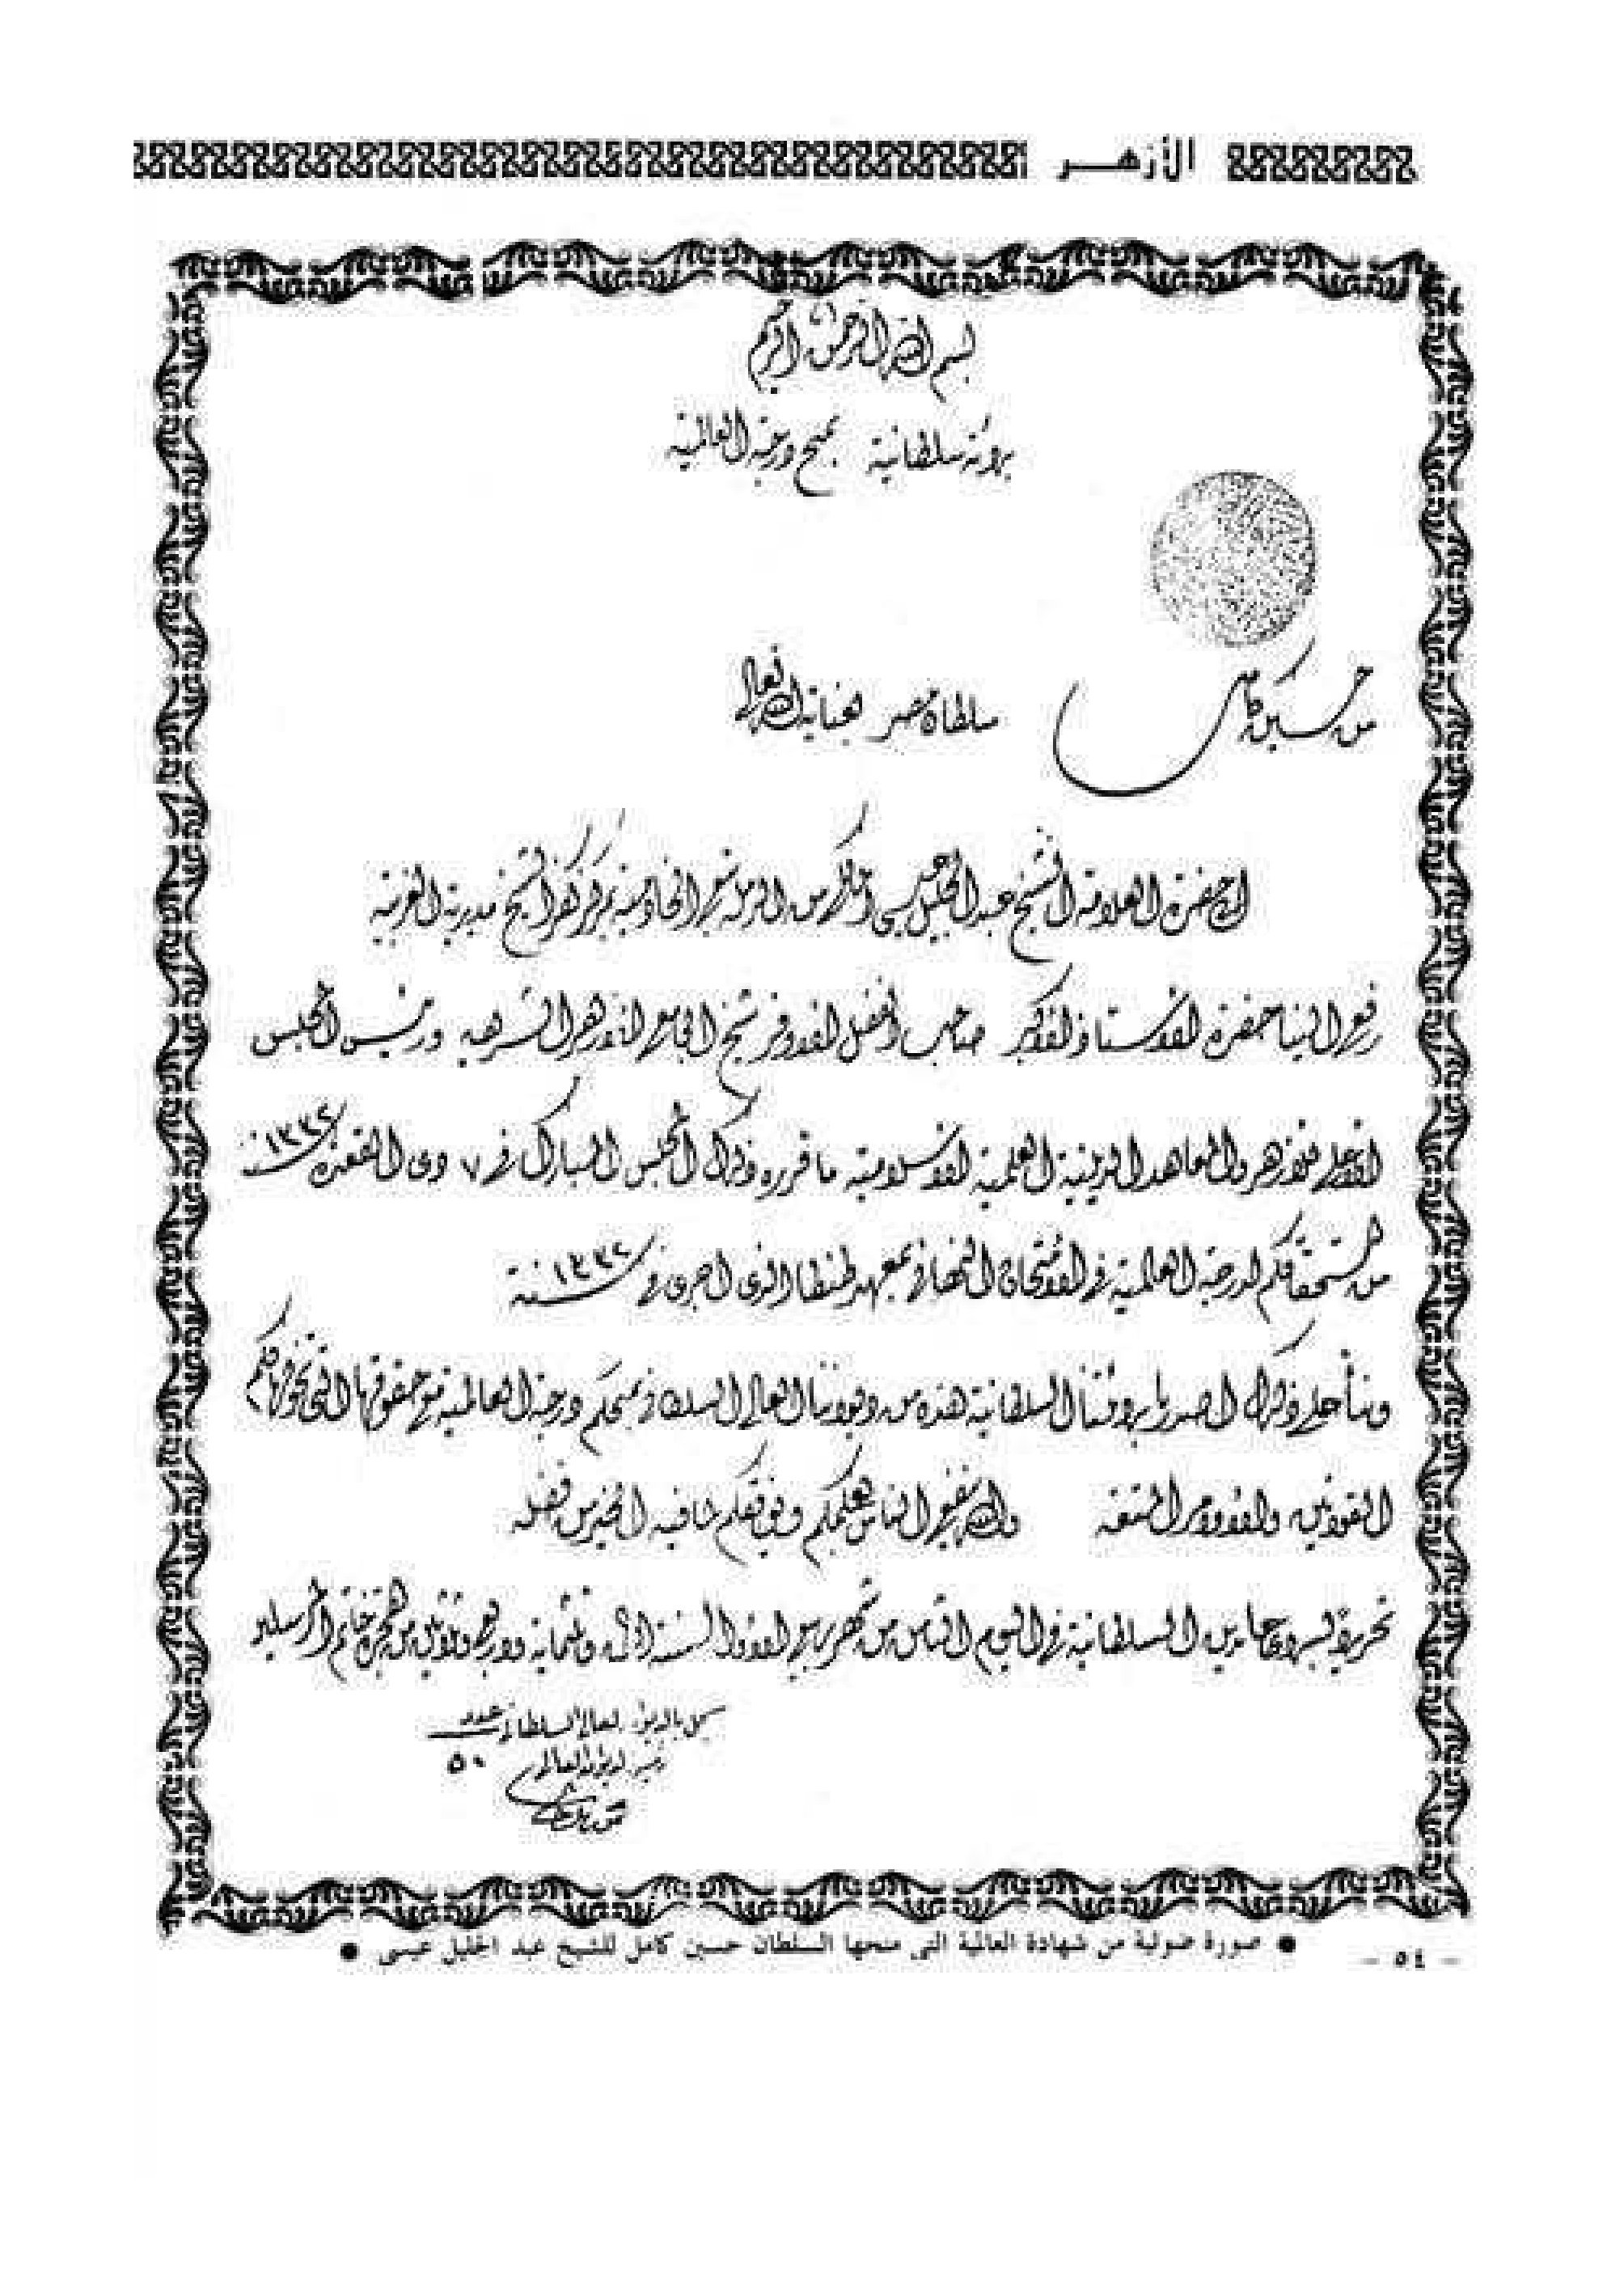 الأزهـــر
بسم الله الرحمن الرحيم
براءة سلطانية بمنح درجة العالمية
من حسين كامل سلطان مصر بعناية الله تعالى
الى حضرة العلامة الشيخ عبد الجليل عيسى المالكى من مركز كفر الشيخ مديرية الغربية
رفع الينا حضرة الاستاذ الاكبر صاحب الفضل الاوفر شيخ الجامع الازهر الشريف ورئيس المجلس
الاعلى للازهر والمعاهد الدينية العلمية الاسلامية ما قرره ذلك المجلس المبارك فى ٧ ذى القعدة سنة ١٣٣٢
من استحقاقكم لدرجة العالمية فى الامتحان النهائى بمعهد طنطا الذى اجرى فى سنة ١٣٣٢
وبناء على ذلك اصدرنا براءتنا السلطانية هذه من ديواننا العالى السلطانى بمنحكم درجة العالمية مع حقوقها التى تخولها لكم
القوانين والاوامر المتبعة والله ينفع الناس بعلمكم ويوفقكم لما فيه الخير من فضله
تحريرا بسراى عابدين السلطانية فى اليوم الثامن من شهر ربيع الاول سنة الف وثلثمائة واربع وثلاثين من هجرة خاتم المرسلين
سجل بالديوان العالى السلطانى عدد
٥٠
رئيس الديوان العالى
● صورة ضوئية من شهادة العالمية التى منحها السلطان حسين كامل للشيخ عبد الجليل عيسى ●
- ٥٤ -